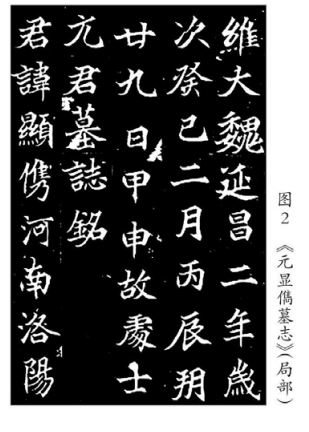 維大魏延昌二年歲
次癸巳二月丙辰朔
廿九日甲申故處士
元君墓誌銘
君諱顯儁河南洛陽
图2 《元显儁墓志》(局部)